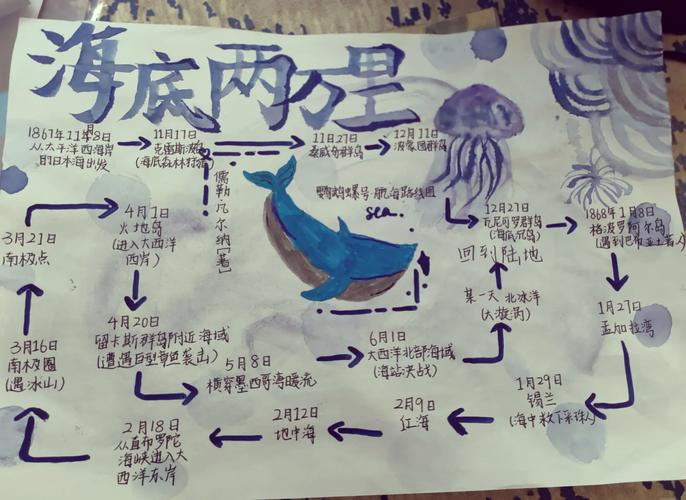 海底两万里
1867年11月8日
从太平洋西海岸
的日本海出发
11月17日
克雷斯波岛
(海底森林狩猎)
11月27日
桑威奇群岛
12月11日
波蒙图群岛
儒勒·凡尔纳[著]
鹦鹉螺号航海路线图
sea.
12月27日
瓦尼可罗群岛
(海底沉船)
1868年1月8日
格波罗阿尔岛
(遇到巴布亚土著人)
1月27日
孟加拉湾
1月29日
锡兰
(海中救下采珠人)
2月9日
红海
2月12日
地中海
2月18日
从直布罗陀
海峡进入大
西洋东岸
3月16日
南极圈
(遇冰山)
3月21日
南极点
4月1日
火地岛
(进入大西洋
西岸)
4月20日
留卡斯群岛附近海域
(遭遇巨型章鱼袭击)
5月8日
横穿墨西哥湾暖流
6月1日
大西洋北部海域
(海站决战)
某一天 北冰洋
(大漩涡)
回到陆地